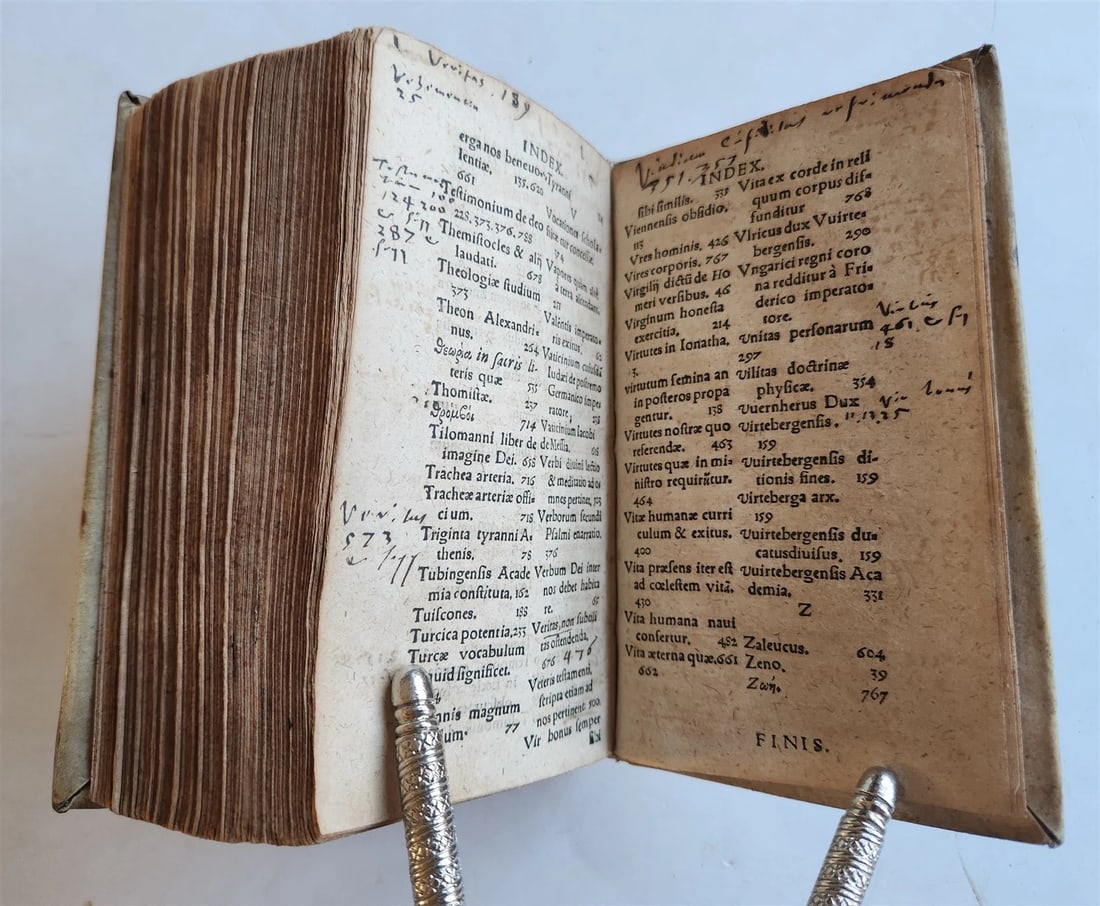 Veritas. 189
Vehementia
25
INDEX.
erga nos beneuo-
lentiæ. 135.620
661
Testimonium de deo
228.373.376.788
Themistocles & alij
laudati. 678
Theologiæ studium
373
Theon Alexandri-
nus. 264
θεωρα in sacris li-
teris quæ 535
Thomistæ. 237
θρομβοι 714
Tilomanni liber de
imagine Dei. 658
Trachea arteria. 716
Tracheæ arteriæ offi-
cium. 718
Triginta tyranni A-
thenis. 78
Tubingensis Acade
mia constituta. 162
Tuiscones. 188
Turcica potentia. 233
Turcæ vocabulum
quid significet.
magnum
77
Tyranni
V
Vocationes schola-
sticæ
174
Vapores
à terra
211
Valentis imperato-
ris exitus. 62
Vaticinium
Iudæi de postremo
Germanico impe-
ratore,
Vaticinium Iacobi
de Messia. 618
Verbi diuini lectio
& meditatio ad o-
mnes pertinet.
Verborum secundi
Psalmi enarratio.
376
Verbum Dei inter
nos debet habita
re. 67
Veritas non subtili
ostendenda.
676 476
Veteris testamenti,
scripta etiam ad
nos pertinent 500.
Vir bonus semper
sibi
124 200
287
Veritas
573
751.757
INDEX.
sibi similis. 339
Viennensis obsidio.
113
Vires hominis. 426
Vires corporis. 767
Virgilij dictū de Ho
meri versibus. 46
Virginum honesta
exercitia. 214
Virtutes in Ionatha.
3.
virtutum semina an
in posteros propa
gentur. 138
Virtutes nostræ quo
referendæ. 463
Virtutes quæ in mi-
nistro requirūtur.
464
Vitæ humanæ curri
culum & exitus.
400
Vita præsens iter est
ad cœlestem vitā.
430
Vita humana naui
confertur. 482
Vita æterna quæ. 661
662
Vita ex corde in reli
quum corpus dif-
funditur 768
Vlricus dux Vuirte-
bergensis. 290
Vngarici regni coro
na redditur à Fri-
derico imperato-
tore.
Vnitas personarum
297
Vilitas doctrinæ
physicæ. 354
Vuernherus Dux
Virtebergensis.
159
Vuirtebergensis di-
tionis fines. 159
Virteberga arx.
159
Vuirtebergensis du-
catus diuisus. 159
Vuirtebergensis Aca
demia. 331
Z
Zaleucus. 604
Zeno. 39
Ζωή. 767
FINIS.